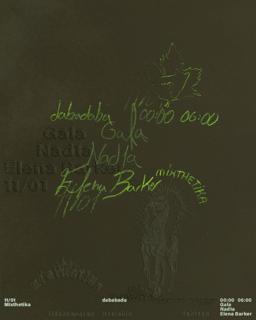 dabadaba 00:00 06:00
Gala
Nadla
Elena Barker
11/01
MIXTHETIKA
Gala
Nadla
Elena Barker
11/01
11/01
Mixthetika
dabadaba
00:00 06:00
Gala
Nadla
Elena Barker